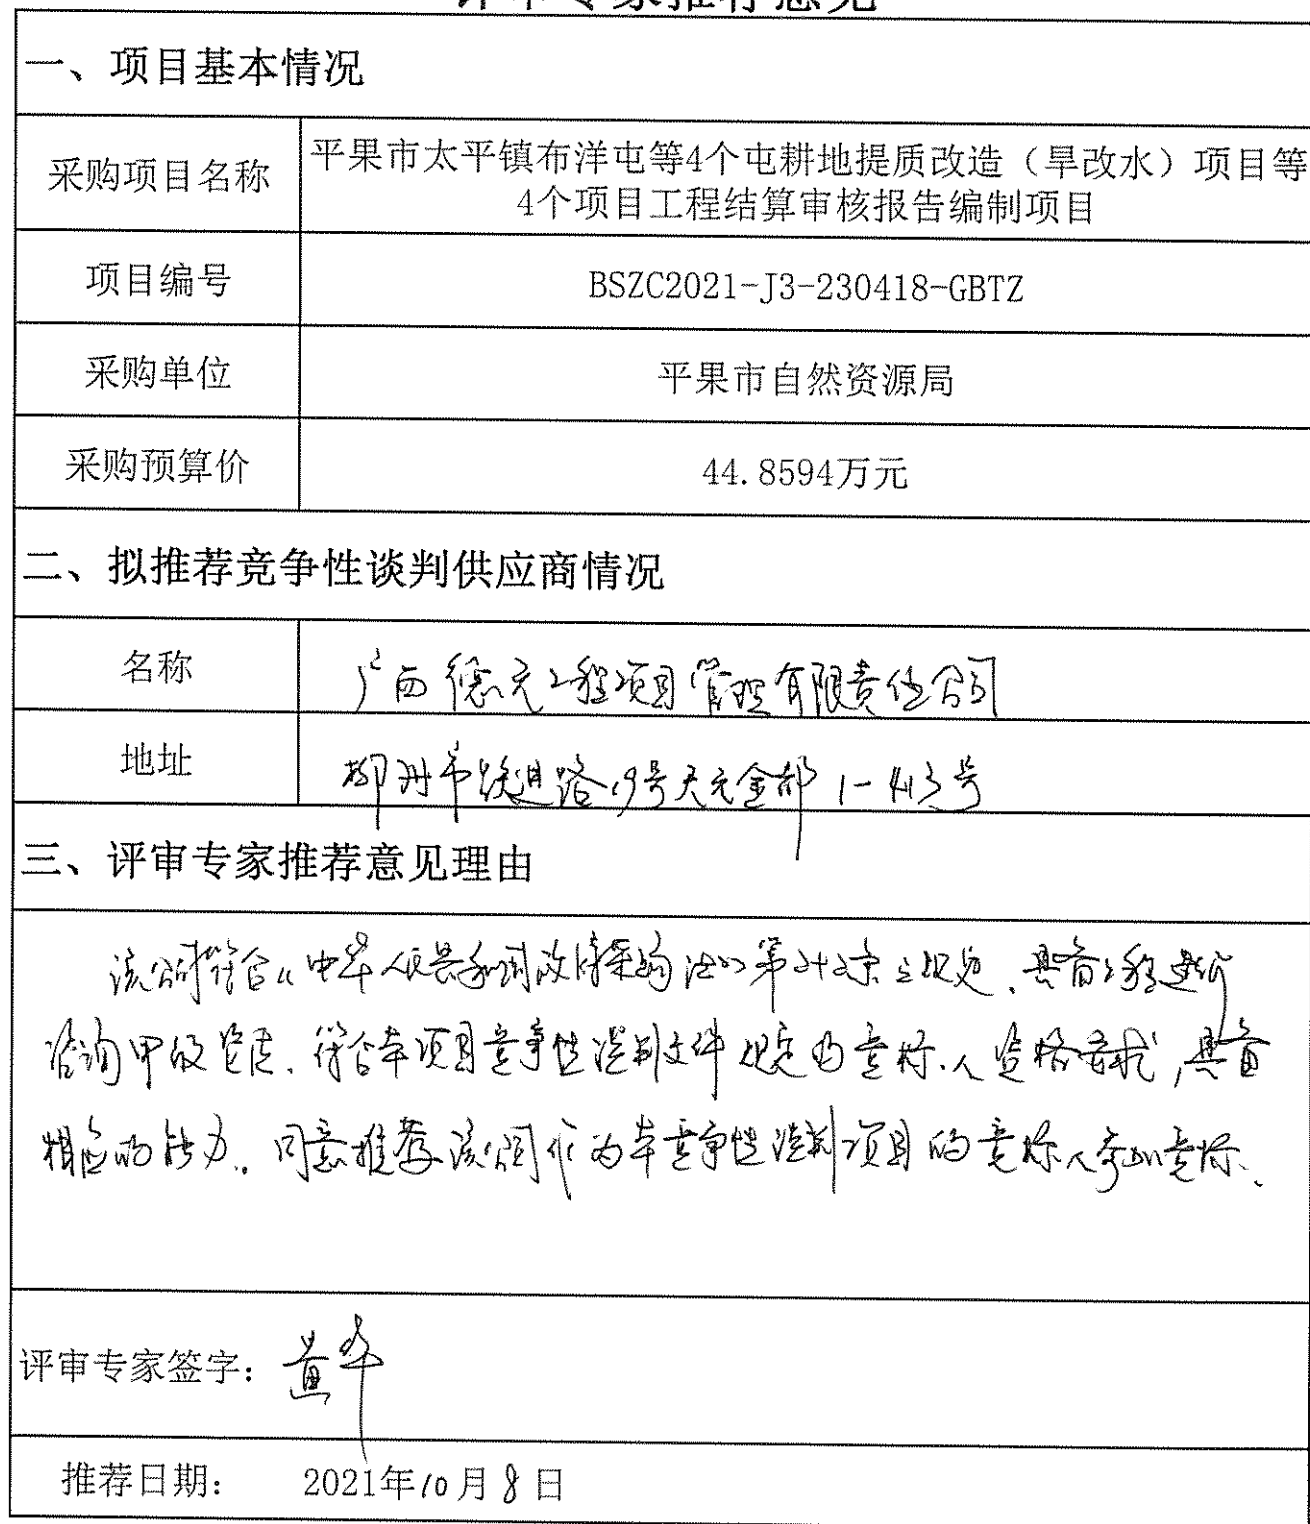 评审专家推荐意见
一、项目基本情况
采购项目名称
平果市太平镇布洋屯等4个屯耕地提质改造（旱改水）项目等
4个项目工程结算审核报告编制项目
项目编号
BSZC2021-J3-230418-GBTZ
采购单位
平果市自然资源局
采购预算价
44.8594万元
二、拟推荐竞争性谈判供应商情况
名称
广西德元工程项目管理有限责任公司
地址
柳州市跃进路19号天元金都1-413号
三、评审专家推荐意见理由
该公司符合《中华人民共和国政府采购法》第二十二条之规定、具备工程造价
咨询甲级资质、符合本项目竞争性谈判文件规定的竞标人资格要求,具备
相应的能力。同意推荐该公司作为本竞争性谈判项目的竞标人参加竞标、
评审专家签字：
推荐日期： 2021年10月8日